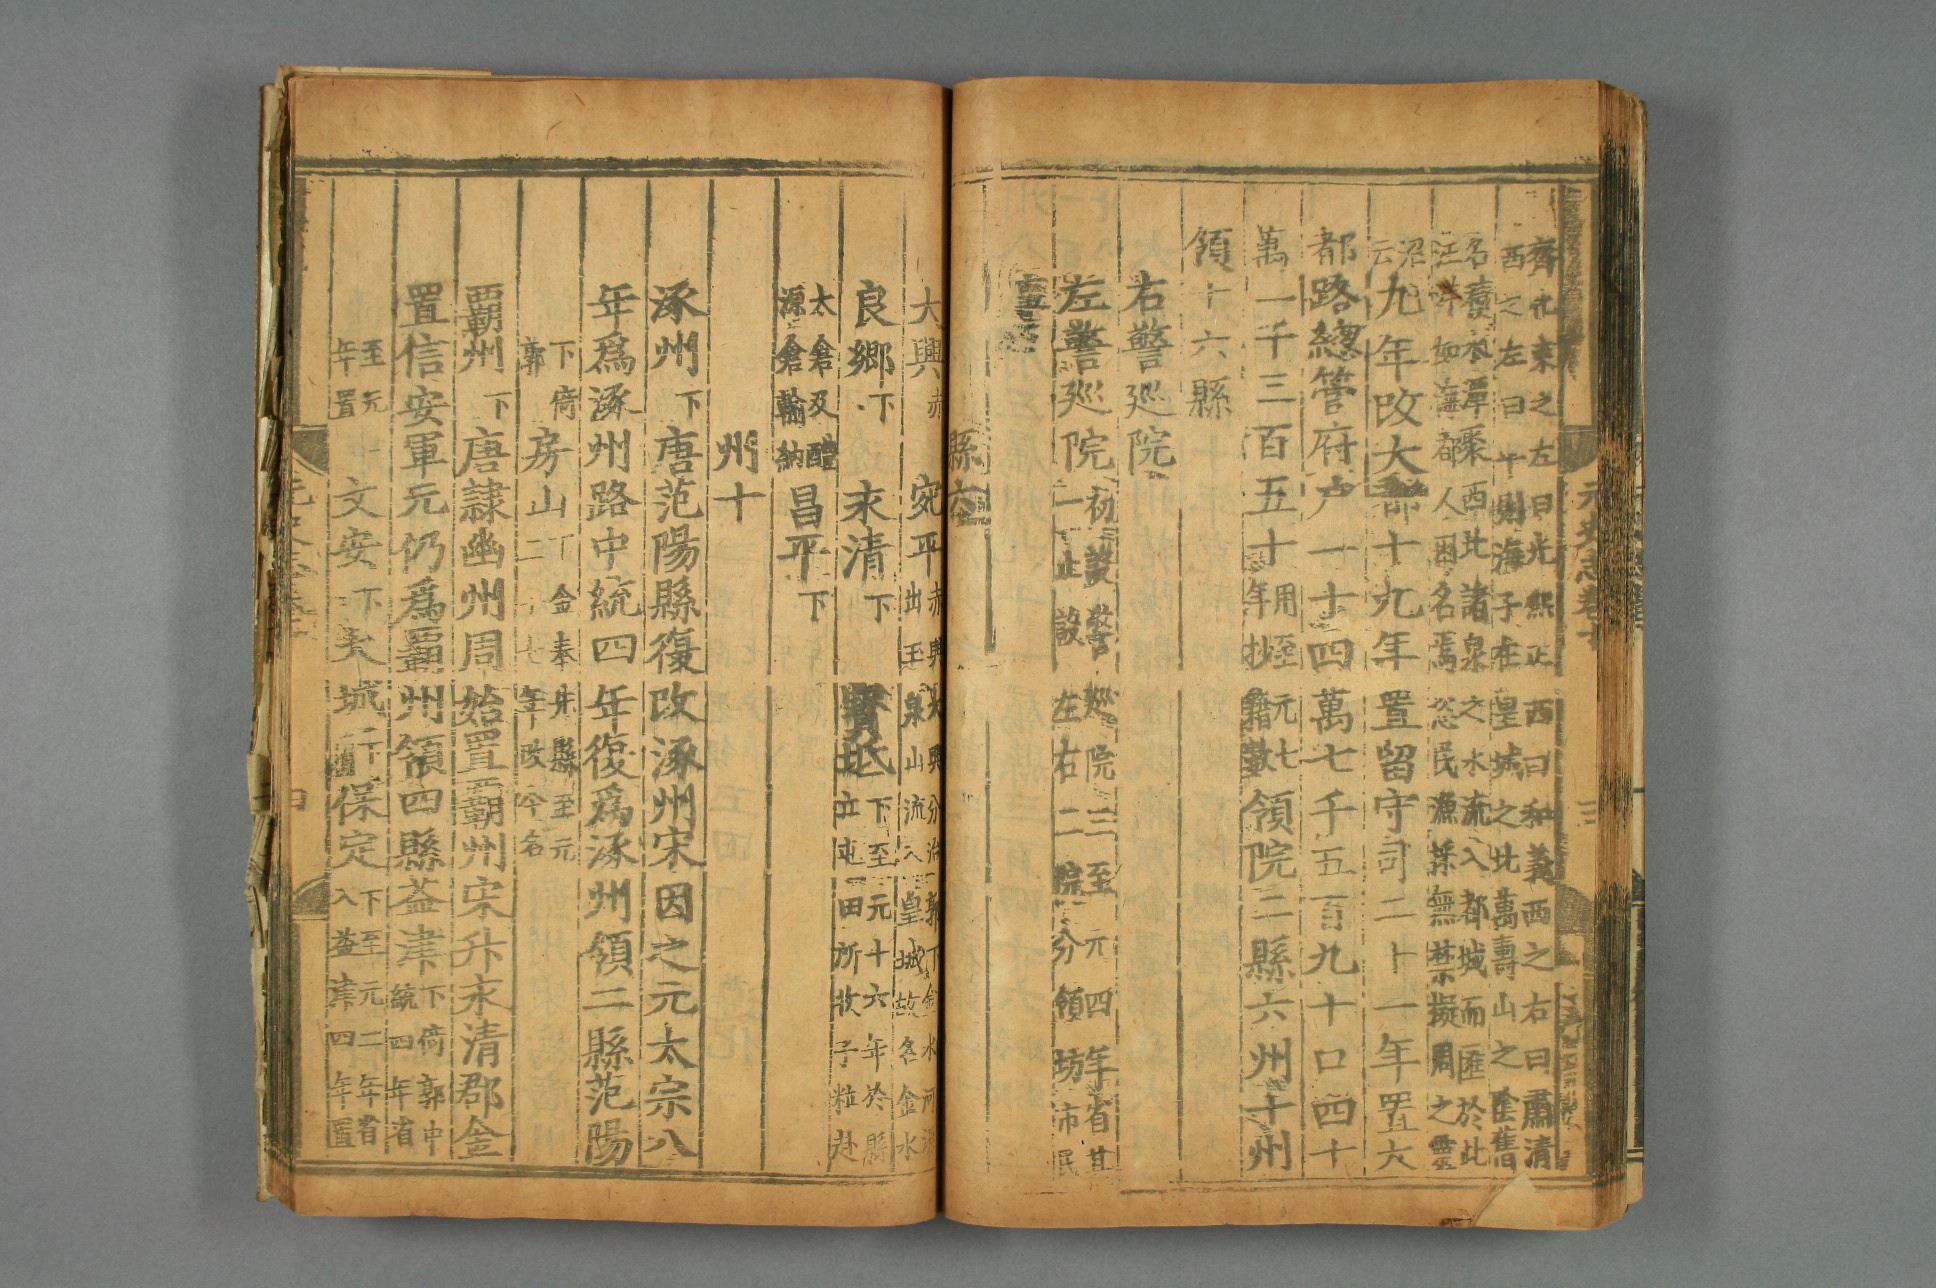 齊化東之左曰光熙正西曰和義西之右曰肅清
西之左曰平則海子在皇城之北萬壽山之陰舊
名積水潭聚西北諸泉之水流入都城而匯於此
汪洋如海都人因名焉恣民漁採無禁擬周之靈
沼
云九年改大都十九年置留守司二十一年置大
都路總管府户一十四萬七千五百九十口四十
萬一千三百五十用至元七
年抄籍數領院二縣六州十州
領十六縣
右警巡院
左警巡院初設警巡院三至元四年省其
一止設左右二院分領坊市民
事
縣六
大興赤 宛平赤與大興分治郭下金水河源
出玉泉山流入皇城故名金水
良鄉下 永清下 寶坻下至元十六年於縣
立屯田所收子粒赴
太倉及醴
源倉輸納昌平下
州十
涿州下唐范陽縣復改涿州宋因之元太宗八
年爲涿州路中統四年復爲涿州領二縣范陽
下倚
郭 房山下金奉先縣至元
二十七年改今名
覇州下唐隷幽州周始置覇州宋升永清郡金
置信安軍元仍爲覇州領四縣益津下倚郭中
統四年省
至元二
年置文安下大城下保定下至元二年省
入益津四年置
元史志卷十
三
四